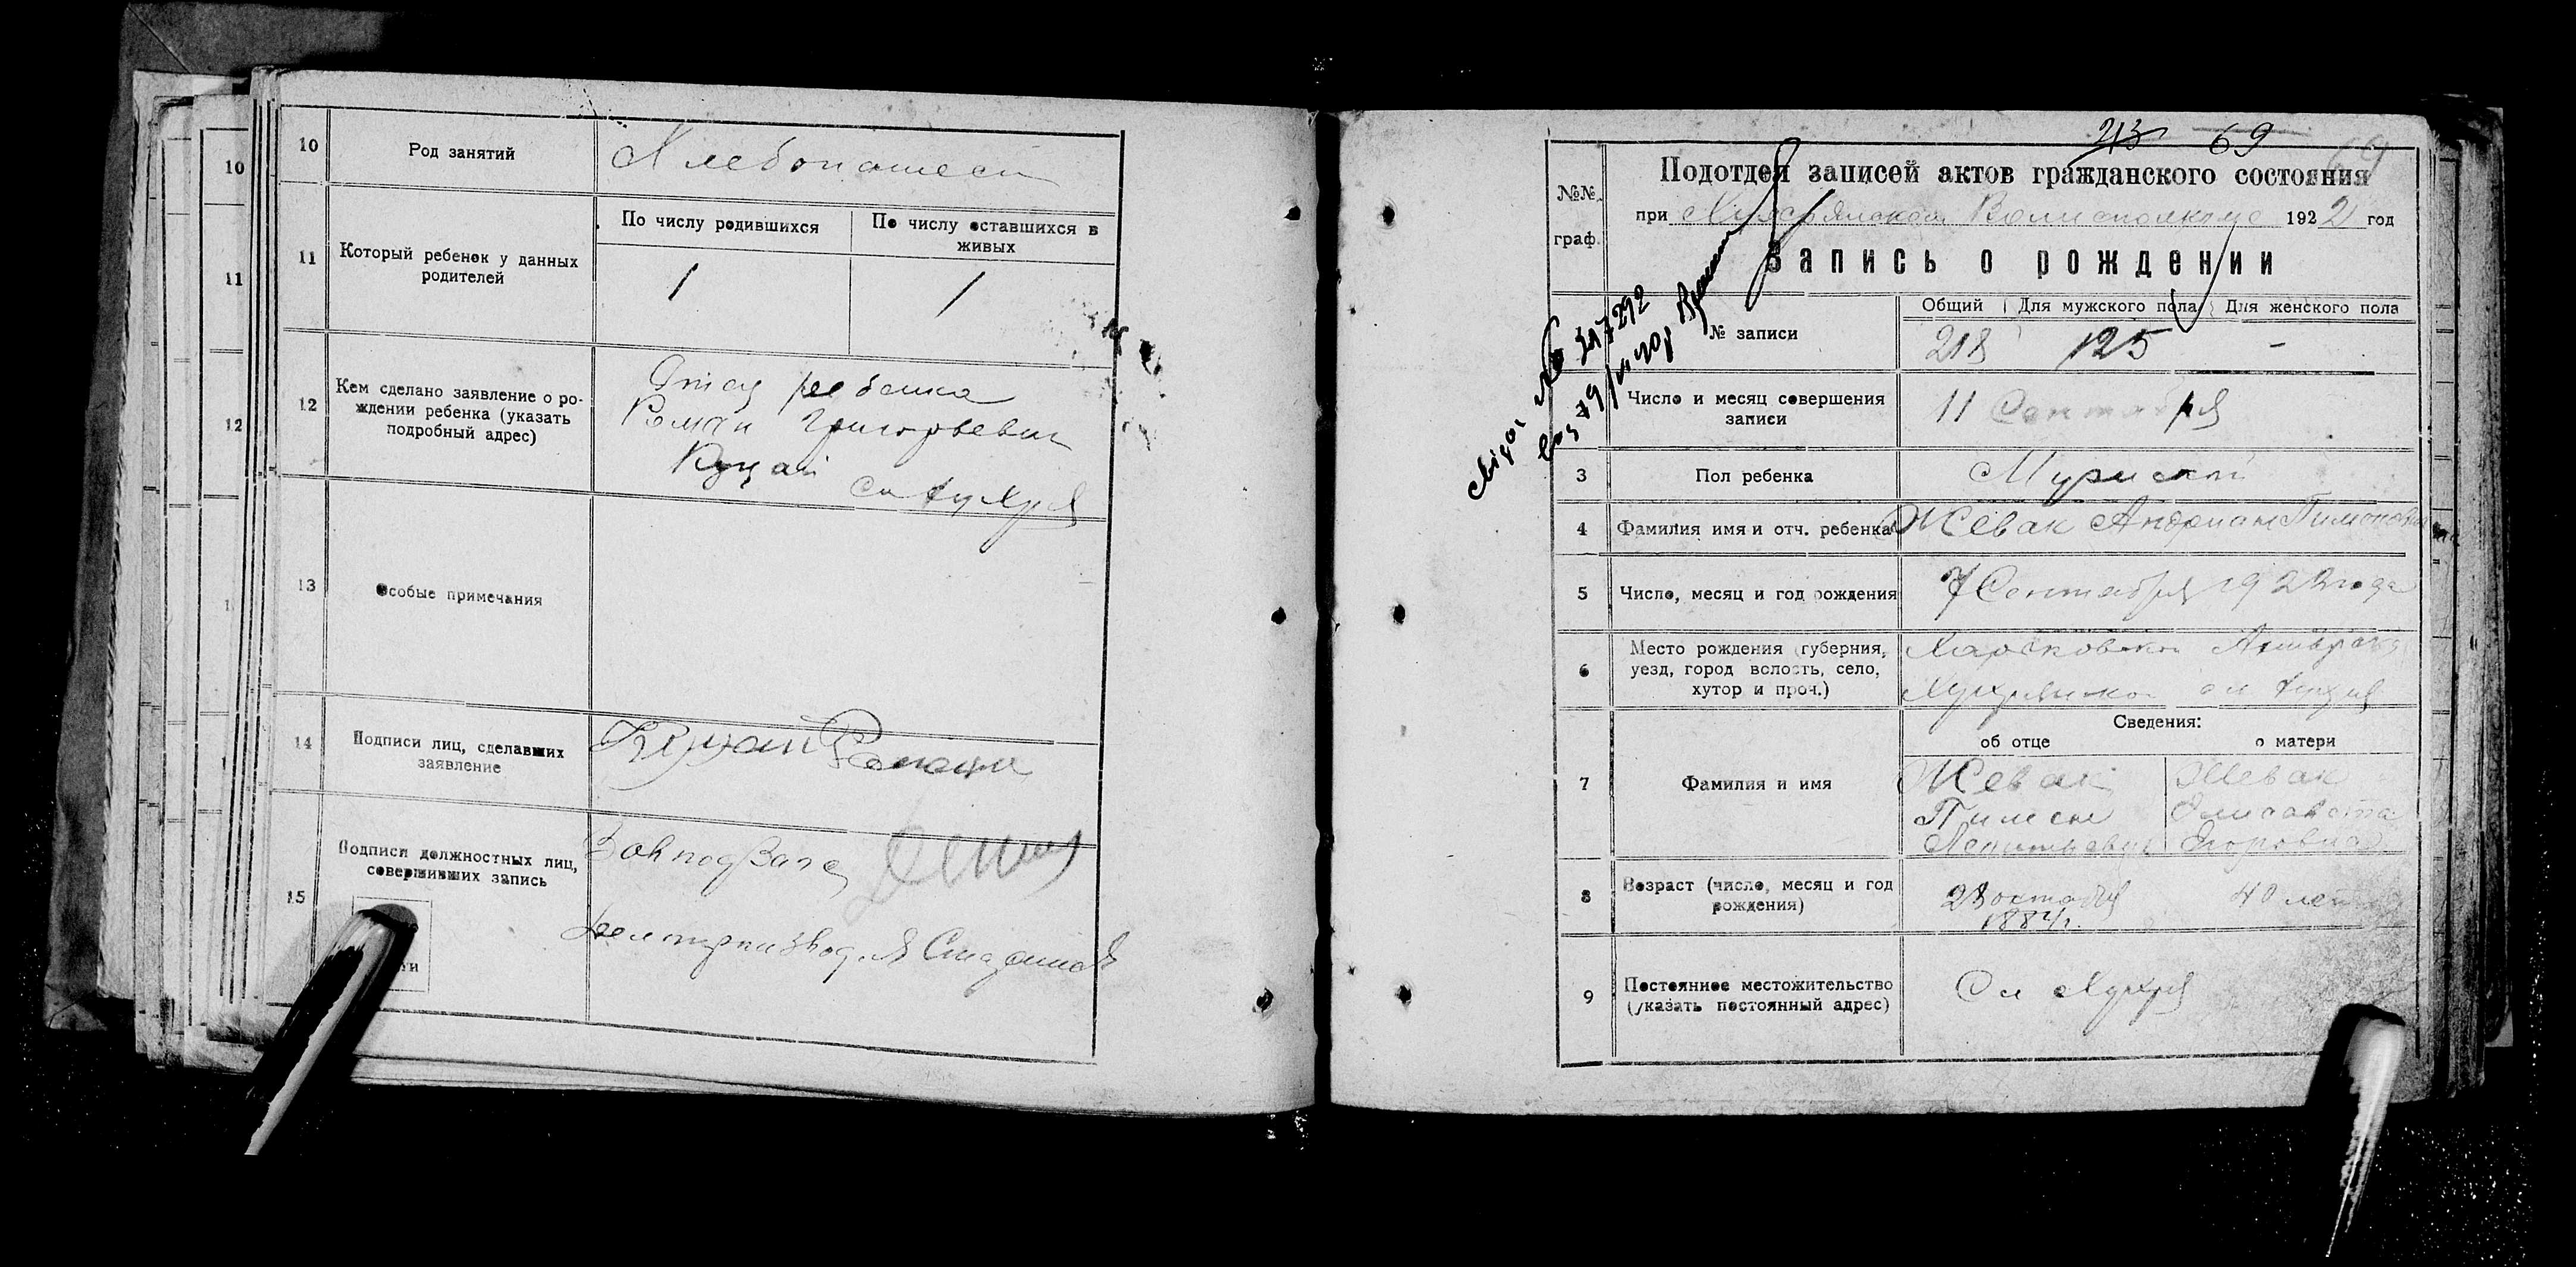 10
11
12
10 Род занятий Хлебопашест
11 Который ребенок у данных
родителей
По числу родившихся
По число оставшихся в
живых
1 1
12 Кем сделано заявление о ро-
ждении ребенка (указать
подробный адрес)
Отец ребенка
Роман Григорьевич
Куцай
сл Хухря
13 Особые примечания
14 Подписи лиц, сделавших
заявление
Куцай Романа
15 Подписи должностных лиц,
совершивших запись
Завподзагс
213 69
69
№№
граф.
Подотдел записей актов гражданского состояния
при Хухрянском Волисполкоме 1922 год
Запись о рождении
№ записи
Общий Для мужского пола Для женского пола
218 125 -
2 Число и месяц совершения
записи
11 Сентября
3 Пол ребенка Мужской
4 Фамилия имя и отч. ребенка Жевак Андриан Пимонович
5 Число, месяц и год рождения 7 Сентября 1922 года
6 Место рождения (губерния,
уезд, город волость, село,
хутор и проч.)
Харьковской Ахтырског
Хухрянской сл Хухря
Сведения:
об отце о матери
7 Фамилия и имя
Жевак Жевак
Пимон Елисавета
Егоровна
8 Возраст (число, месяц и год
рождения)
28 октября 40 лет
1884 г.
9 Постоянное местожительство
(указать постоянный адрес)
Сл Хухря
№ 347292